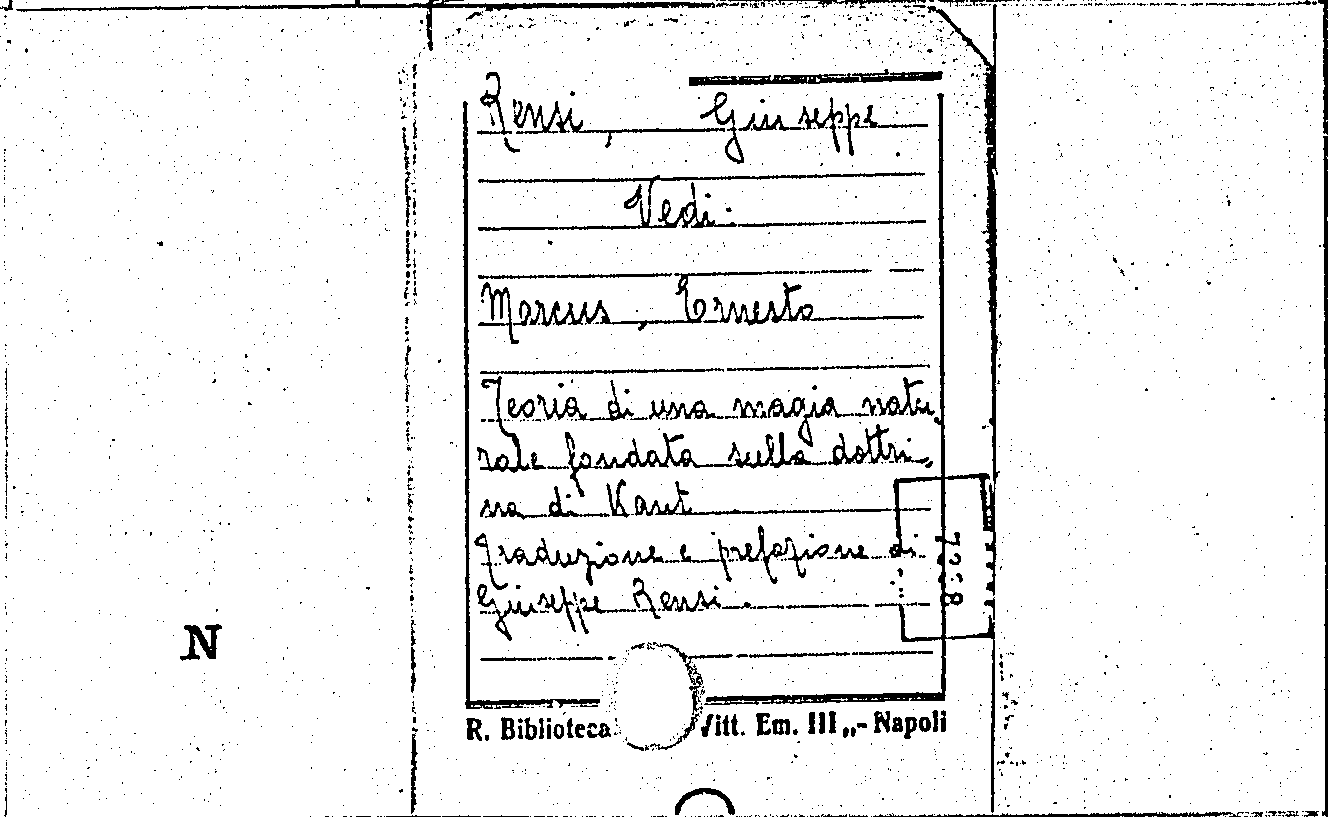 Rensi, Giuseppe
Vedi:
Marcus, Ernesto
Teoria di una magia natu,
rale fondata sulla dottri,
na di Kant
Traduzione e prefazione di
Giuseppe Rensi.
N
R. Biblioteca Vitt. Em. III „- Napoli